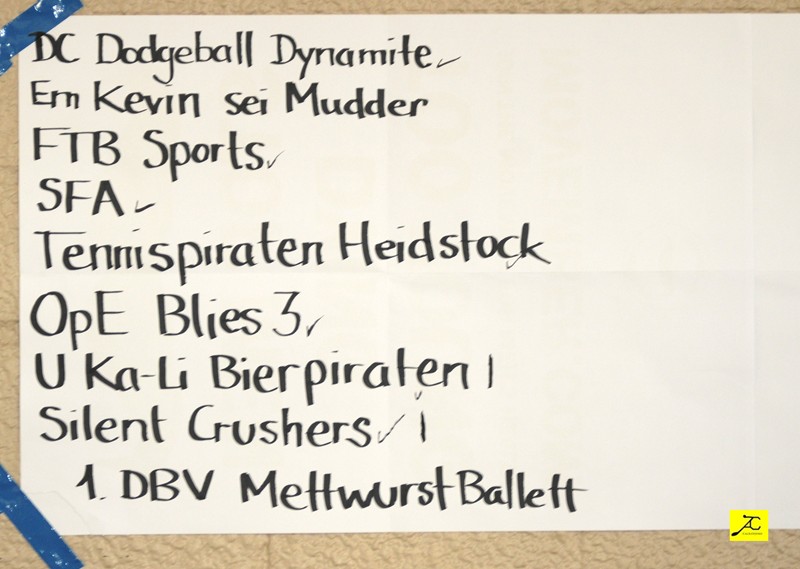 DC Dodgeball Dynamite ✓
Em Kevin sei Mudder
FTB Sports ✓
SFA ✓
Tennispiraten Heidstock ✓
OpE Blies 3 ✓
U Ka-Li Bierpiraten | ✓
Silent Crushers ✓ |
1. DBV Mettwurst Ballett
AC